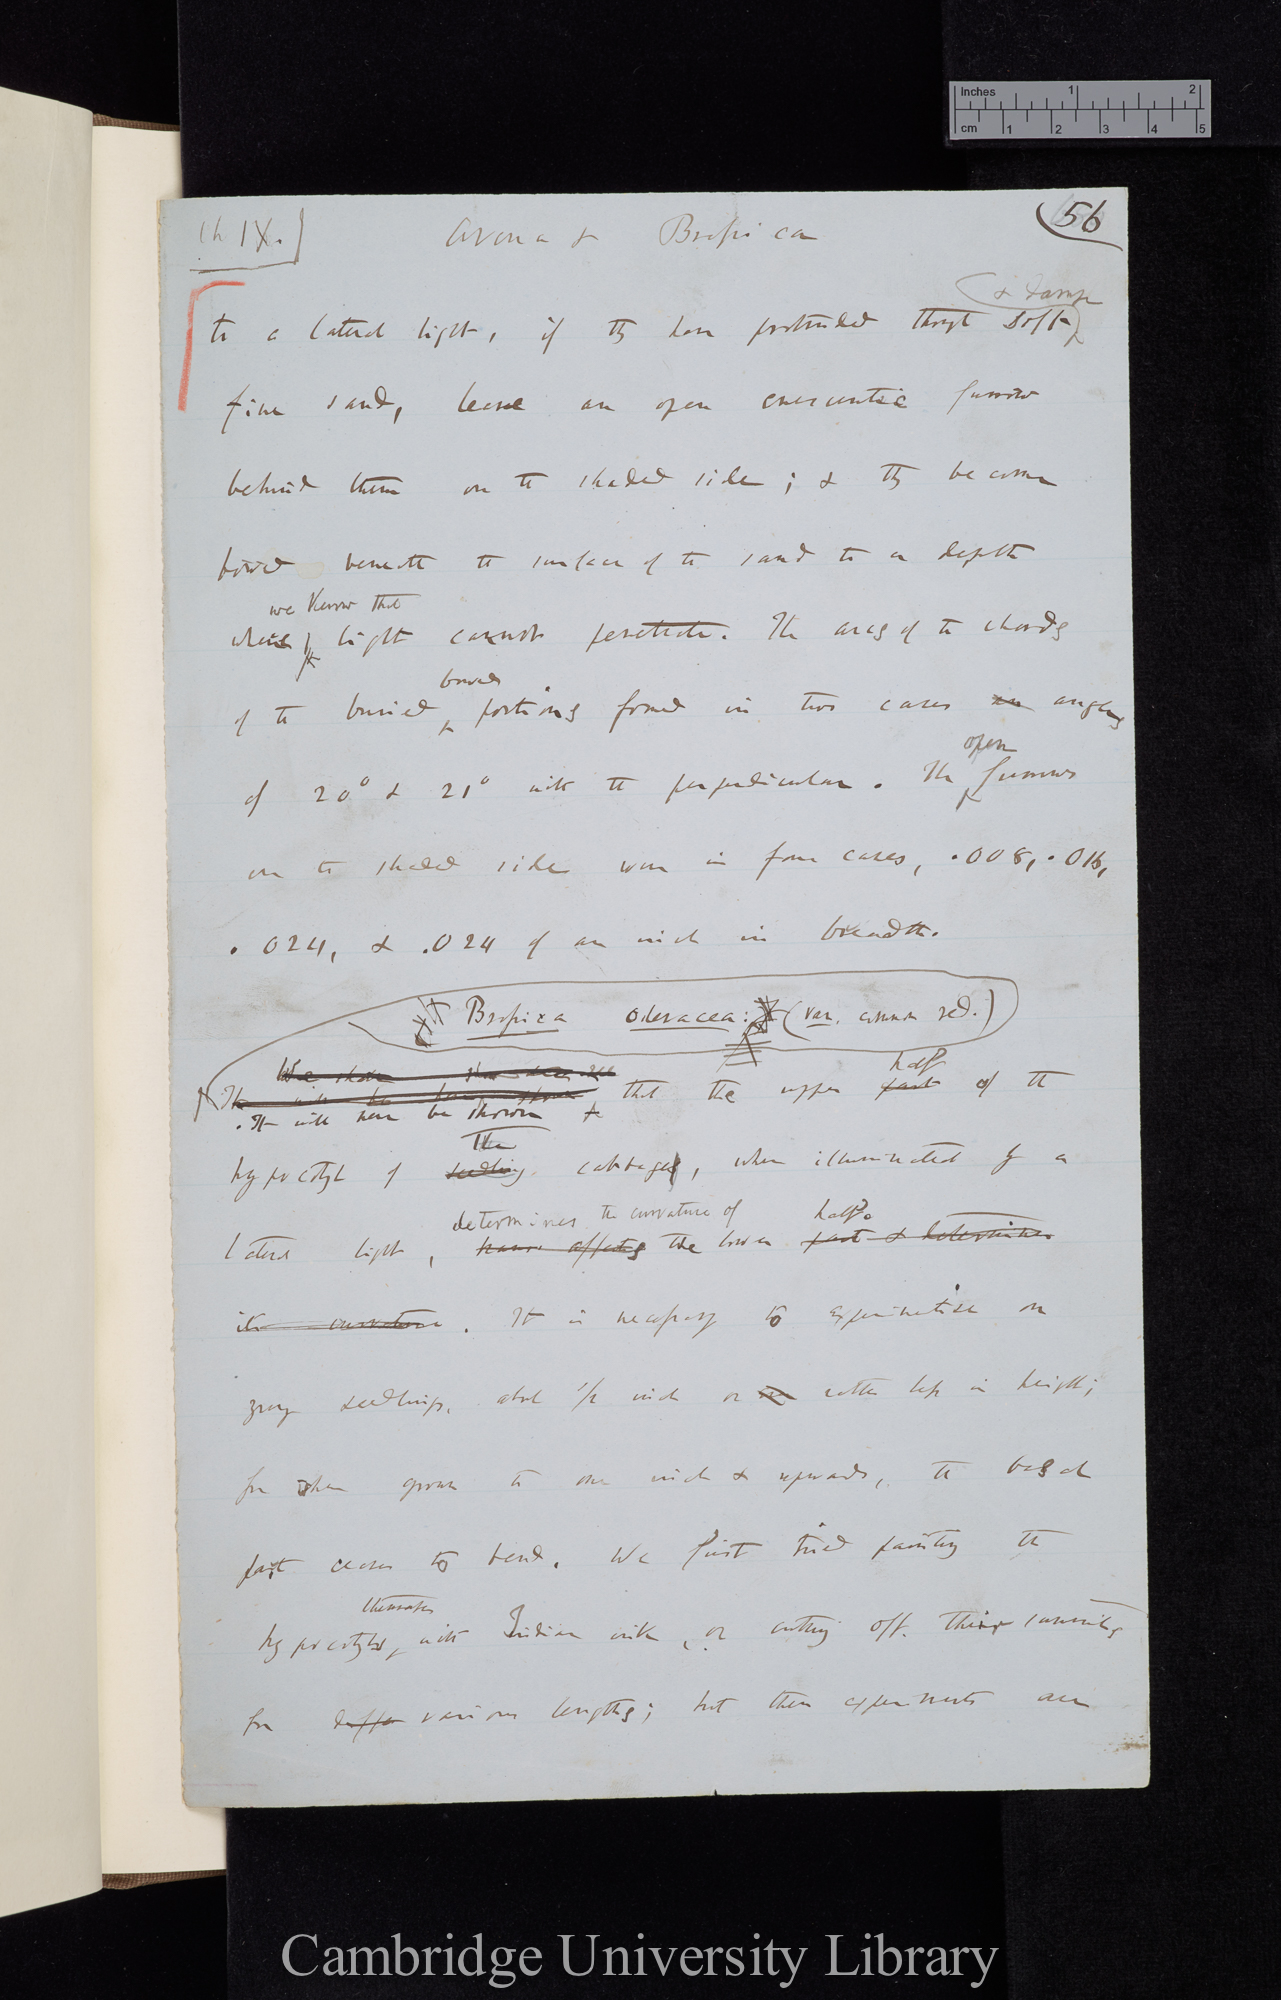 Inches 1 2
cm 1 2 3 4 5
Ch IX.
Avena & Brassica
56
& damp
to a lateral light, if they have protruded through soft
fine sand, leave an open crescentic furrow
behind them on the shaded side; & they become
bowed beneath the surface of the sand to a depth
we know that
where light cannot penetrate. The arcs of the chords
bowed
of the buried portions formed in two cases an angles
of 20° & 21° with the perpendicular. The furrows
open
on the shaded side were in four cases, .008, .016,
.024, & .024 of an inch in breadth.
Brassica oleracea: (var. common red.)
We shall
half
It will be shown that the upper part of the
It will now be shown
The
hypocotyl of seedling cabbages, when illuminated by a
determines the curvature of half.
lateral light, affects the lower part & determines
its curvature. It is necessary to experimentise on
young seedlings, about 1/2 inch or rather less in height;
for when grown to one inch & upwards, the basal
part ceases to bend. We first tried painting the
themselves
hypocotyls with Indian ink, or cutting off their summits
for differ various lengths; but these experiments are
Cambridge University Library